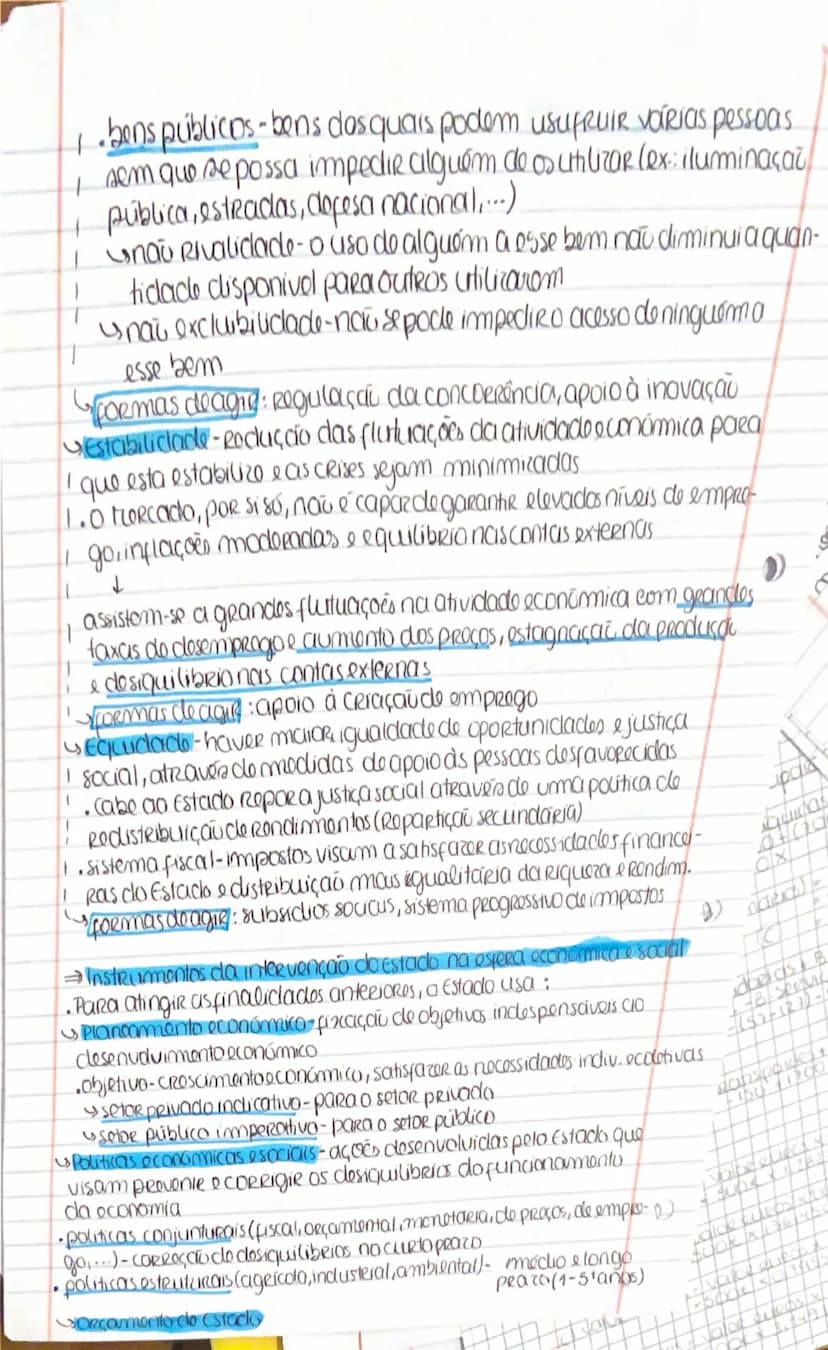 .bens públicos - bens dos quais podem usufruir várias pessoas
sem que se possa impedir alguém de os utilizar (ex.: iluminação
pública, estradas, defesa nacional,...)
↳ não rivalidade - o uso de alguém a esse bem não diminui a quan-
tidade disponível para outros utilizarem
↳ não exclubilidade - não se pode impedir o acesso de ninguém a
esse bem
↳ formas de agir: regulação da concorrência, apoio à inovação
↳ Estabilidade - redução das flutuações da atividade económica para
que esta estabilize e as crises sejam minimizadas
. O mercado, por si só, não é capaz de garantir elevados níveis de empre-
go, inflações moderadas e equilíbrio nas contas externas
↓
assistem-se a grandes flutuações na atividade económica com grandes
taxas de desemprego e aumento dos preços, estagnação da produção
e desiquilíbrio nas contas externas
↳ formas de agir: apoio à criação de emprego
↳ Equidade - haver maior igualdade de oportunidades e justiça
social, através de medidas de apoio às pessoas desfavorecidas
. cabe ao Estado repor a justiça social através de uma política de
redistribuição de rendimentos (repartição secundária)
. sistema fiscal - impostos visam a satisfazer as necessidades financei-
ras do Estado e distribuição mais igualitária da riqueza e rendim.
↳ formas de agir: subsídios sociais, sistema progressivo de impostos
⇒ Instrumentos da intervenção do Estado na esfera económica e social
. Para atingir as finalidades anteriores, o Estado usa:
↳ Planeamento económico - fixação de objetivos indespensáveis ao
desenvolvimento económico
. objetivo - crescimento económico, satisfazer as necessidades indiv. e coletivas
↳ setor privado indicativo - para o setor privado
↳ setor público imperativo - para o setor público
↳ Políticas económicas e sociais - ações desenvolvidas pelo Estado que
visam prevenir e corrigir os desiquilíbrios do funcionamento
da economia
. políticas conjunturais (fiscal, orçamental, monetária, de preços, de empre-
go,...) - correção de desiquilíbrios no curto prazo
. políticas estruturais (agrícola, industrial, ambiental) - médio e longo
prazo (1-5 anos)
↳ Orçamento do Estado